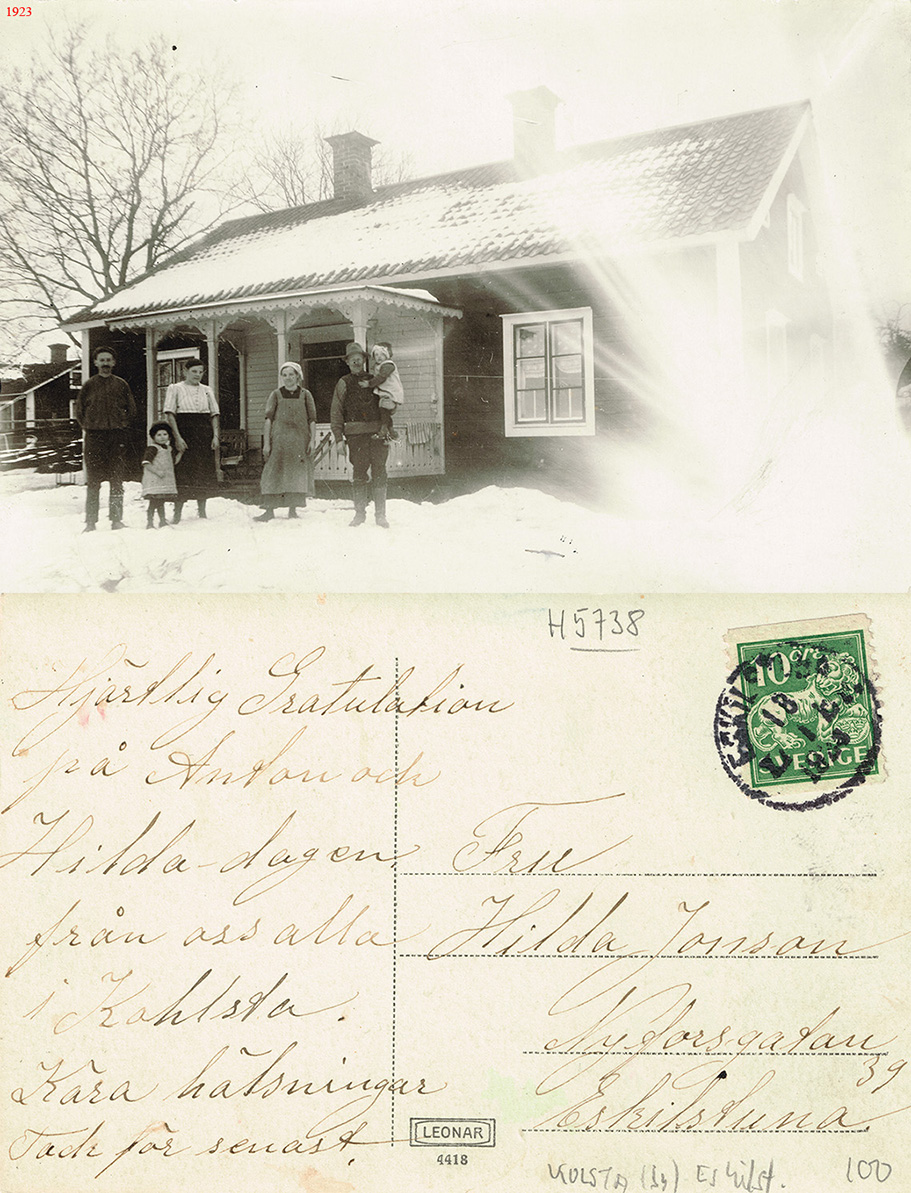 1923
H5738
10 ÖRE
SVERIGE
18 1
Hjärtlig Gratulation
på Anton och
Hilda-dagen
från oss alla
i Kohlsta.
Kära hälsningar
Tack för senast.
Fru
Hilda Jonson
Nyforsgatan
39
Eskilstuna.
LEONAR
4418
KOLSTA (By) Eskilst.
100